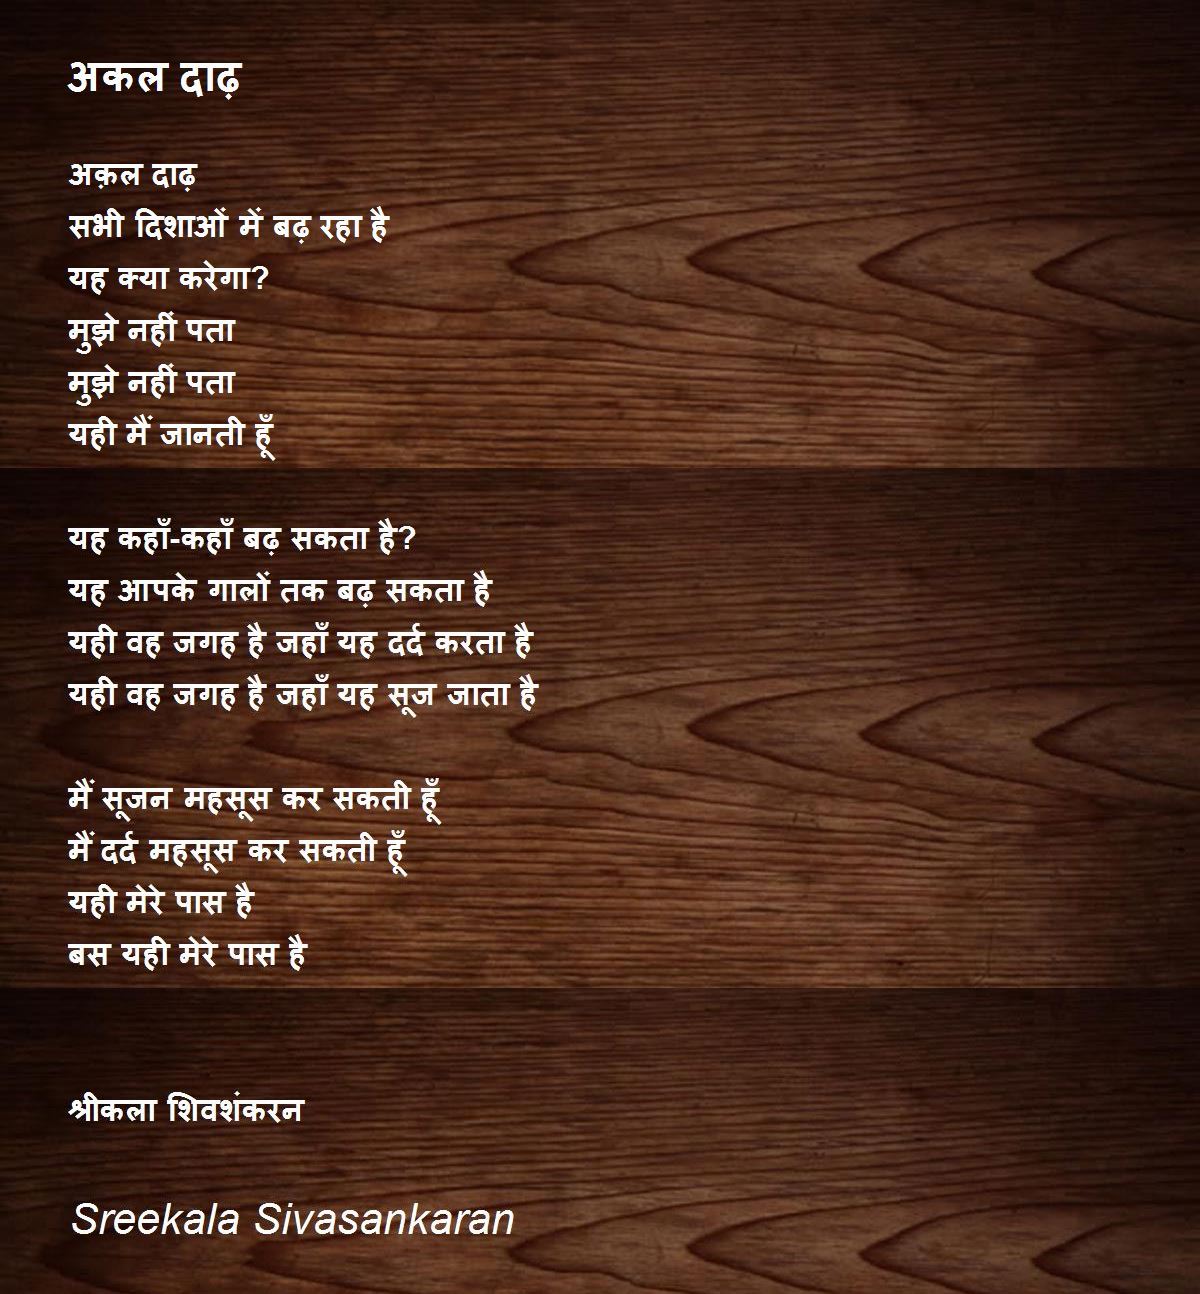 अकल दाढ़
अक़ल दाढ़
सभी दिशाओं में बढ़ रहा है
यह क्या करेगा?
मुझे नहीं पता
मुझे नहीं पता
यही मैं जानती हूँ
यह कहाँ-कहाँ बढ़ सकता है?
यह आपके गालों तक बढ़ सकता है
यही वह जगह है जहाँ यह दर्द करता है
यही वह जगह है जहाँ यह सूज जाता है
मैं सूजन महसूस कर सकती हूँ
मैं दर्द महसूस कर सकती हूँ
यही मेरे पास है
बस यही मेरे पास है
श्रीकला शिवशंकरन
Sreekala Sivasankaran